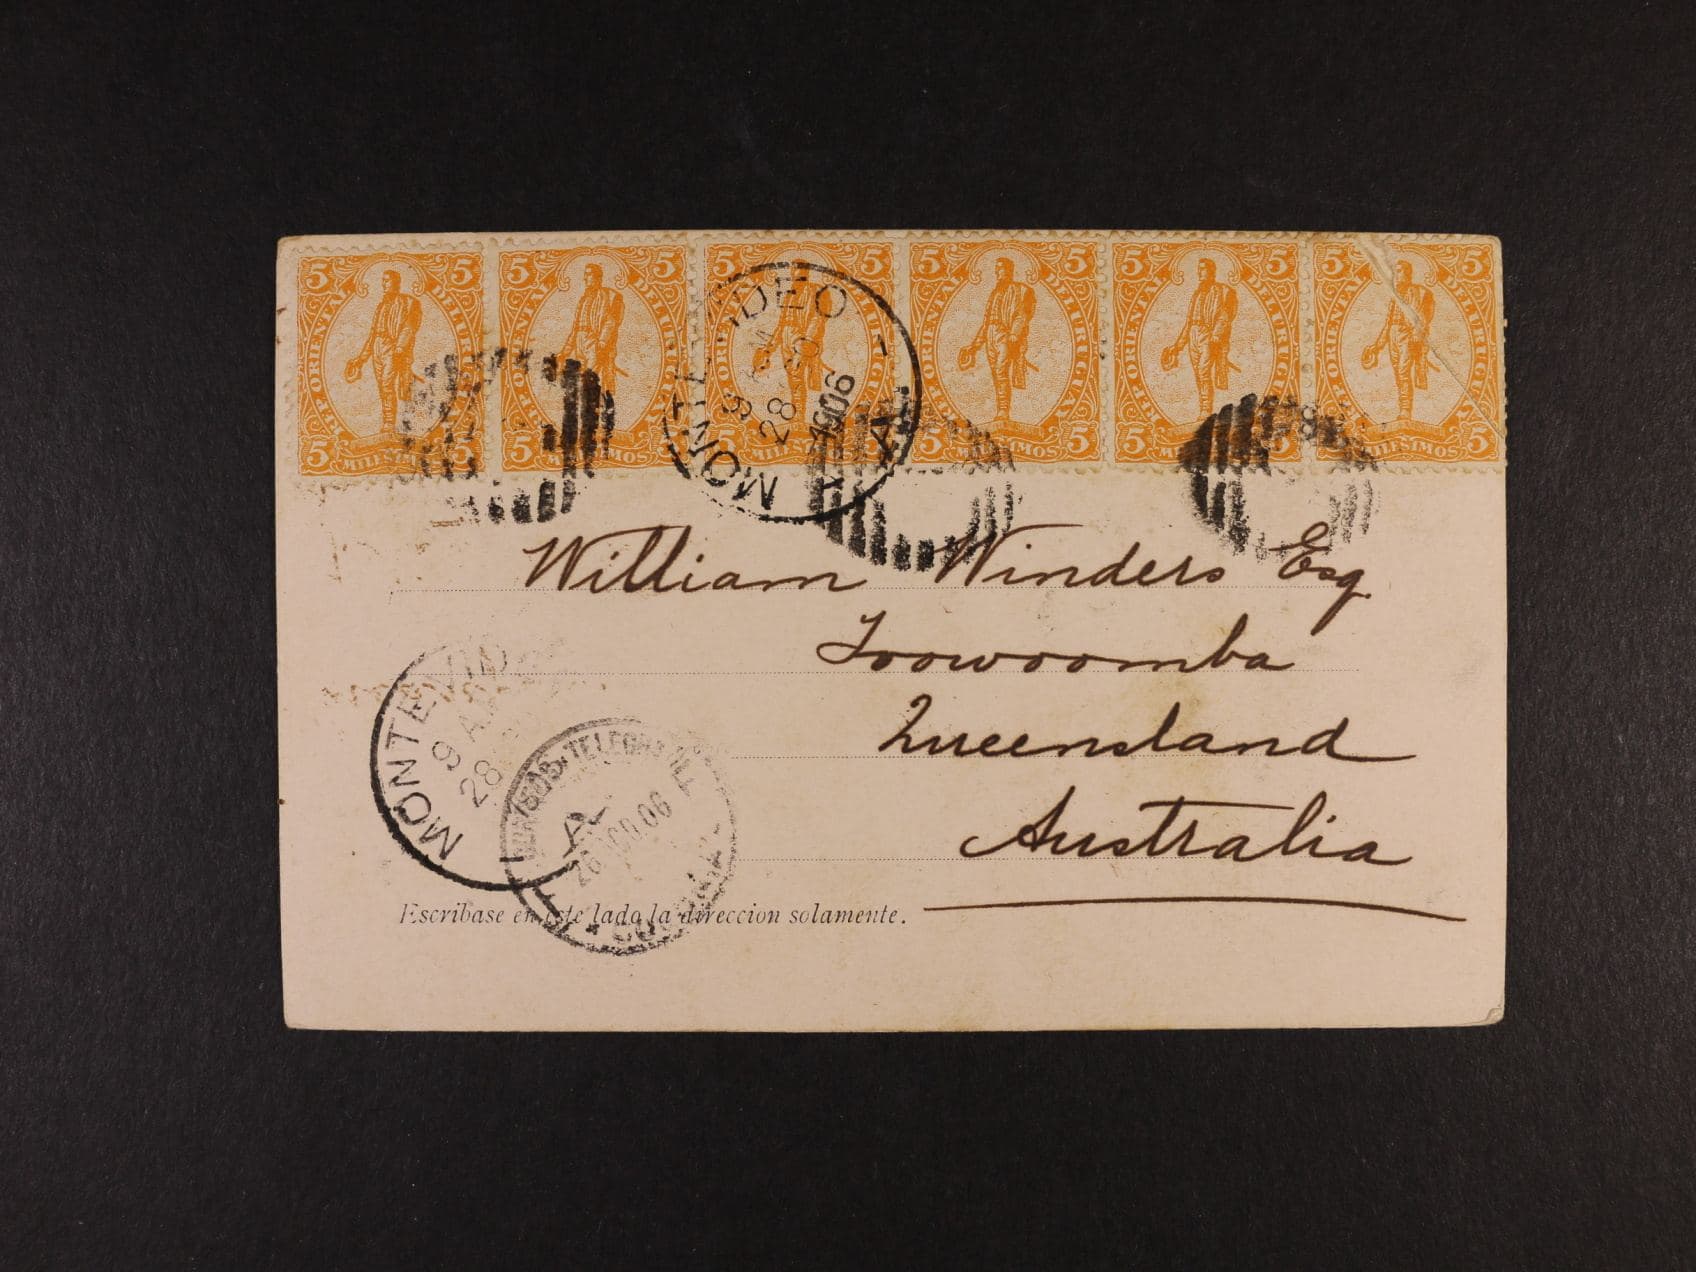 5 5 5 5 5 5 5 5 5 5 5 5
REP. ORIENTAL DEL URUGUAY REP. ORIENTAL DEL URUGUAY REP. ORIENTAL DEL URUGUAY REP. ORIENTAL DEL URUGUAY REP. ORIENTAL DEL URUGUAY REP. ORIENTAL DEL URUGUAY
5 MILESIMOS 5 5 MILESIMOS 5 5 MILESIMOS 5 5 MILESIMOS 5 5 MILESIMOS 5 5 MILESIMOS 5
MONTEVIDEO
28
1906
A
William Winders Esq.
Toowoomba
Queensland
Australia
MONTEVIDEO
9 AM
28
A
26 06
Escribase en este lado la direccion solamente.